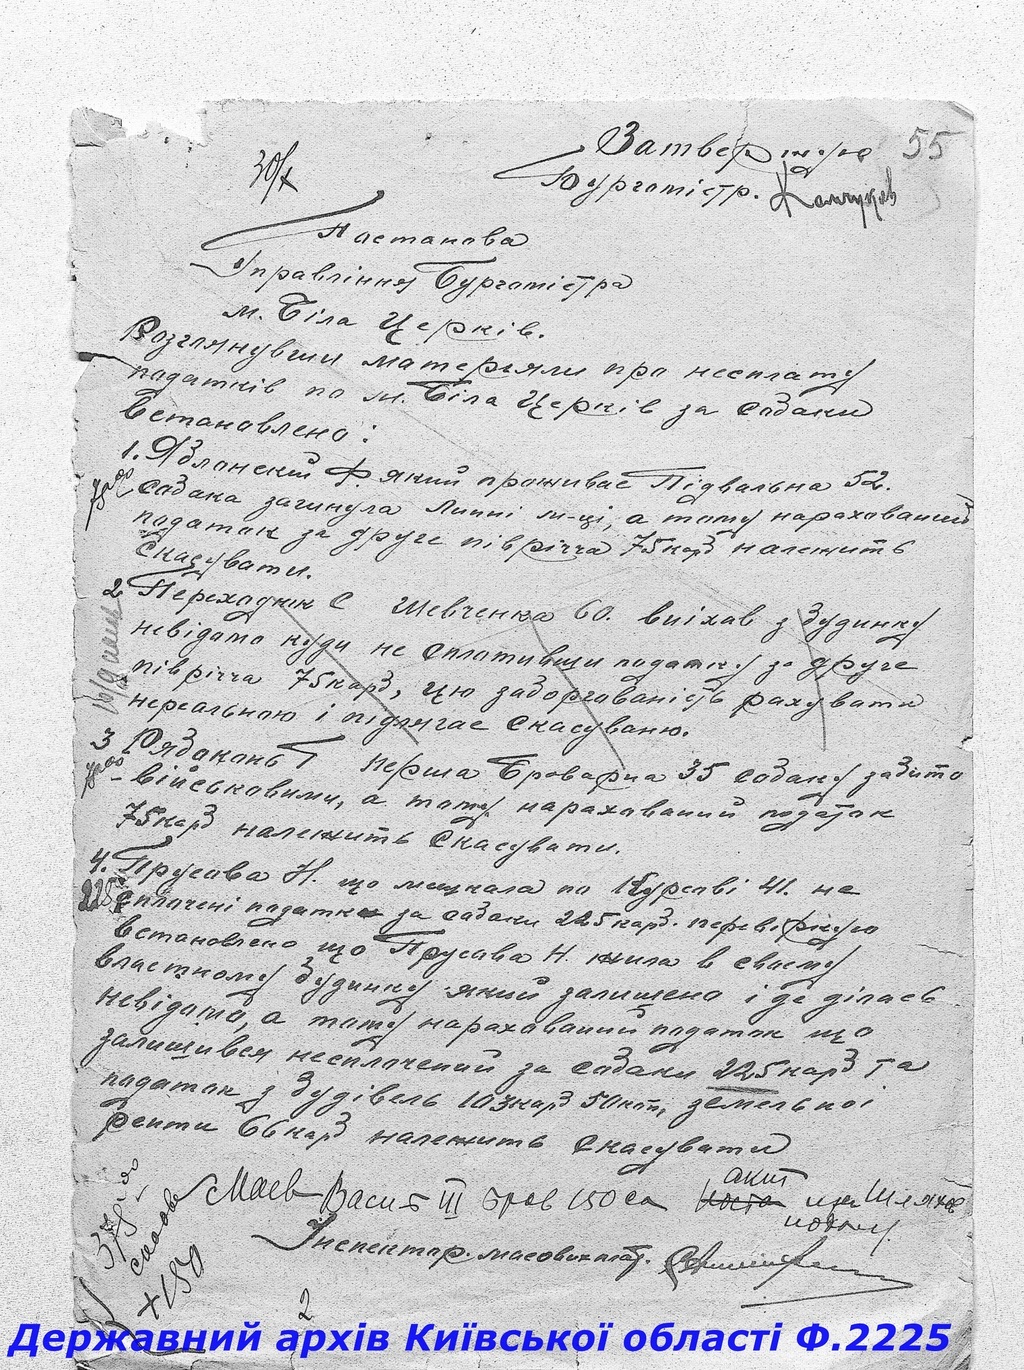 Затверджую 55
30/X
Бургомістр.
Постанова
Управління Бургомістра
м. Біла Церків.
Розглянувши матерьяли про несплату
податків по м. Біла Церків за собаки
встановлено:
1. Яблонский Ф. який проживає Підвальна 52.
собака загинула Липні м-ці, а тому нарахований
податок за друге півріччя 75 карб належить
Скасувати.
2 Переходнік С Шевченка 60. виіхав з будинку
невідомо куди не сплативши податку за друге
півріччя 75 карб, цю заборгованість рахувати
нереальною і підлягає Скасуваню.
3 Рядоконь Г Перша Броварна 35 собаку забито
військовими, а тому нарахований податок
75 карб належить Скасувати.
4. Прусова Н. що мешкала по Курсові 41. не
сплачені податки за собаки 225 карб. перевіркою
встановлено що Прусова Н. жила в своєму
власному будинку який залишено і де ділась
невідомо, а тому нарахований податок що
залишився несплачений за собаки 225 карб та
податок з будівель 103 карб 50 коп, земельноі
ренти 66 карб належить скасувати
Маєв Васил III 150 акт
подат.
375
+150
Інспектор. масових плат.
2
Державний архів Київської області Ф.2225